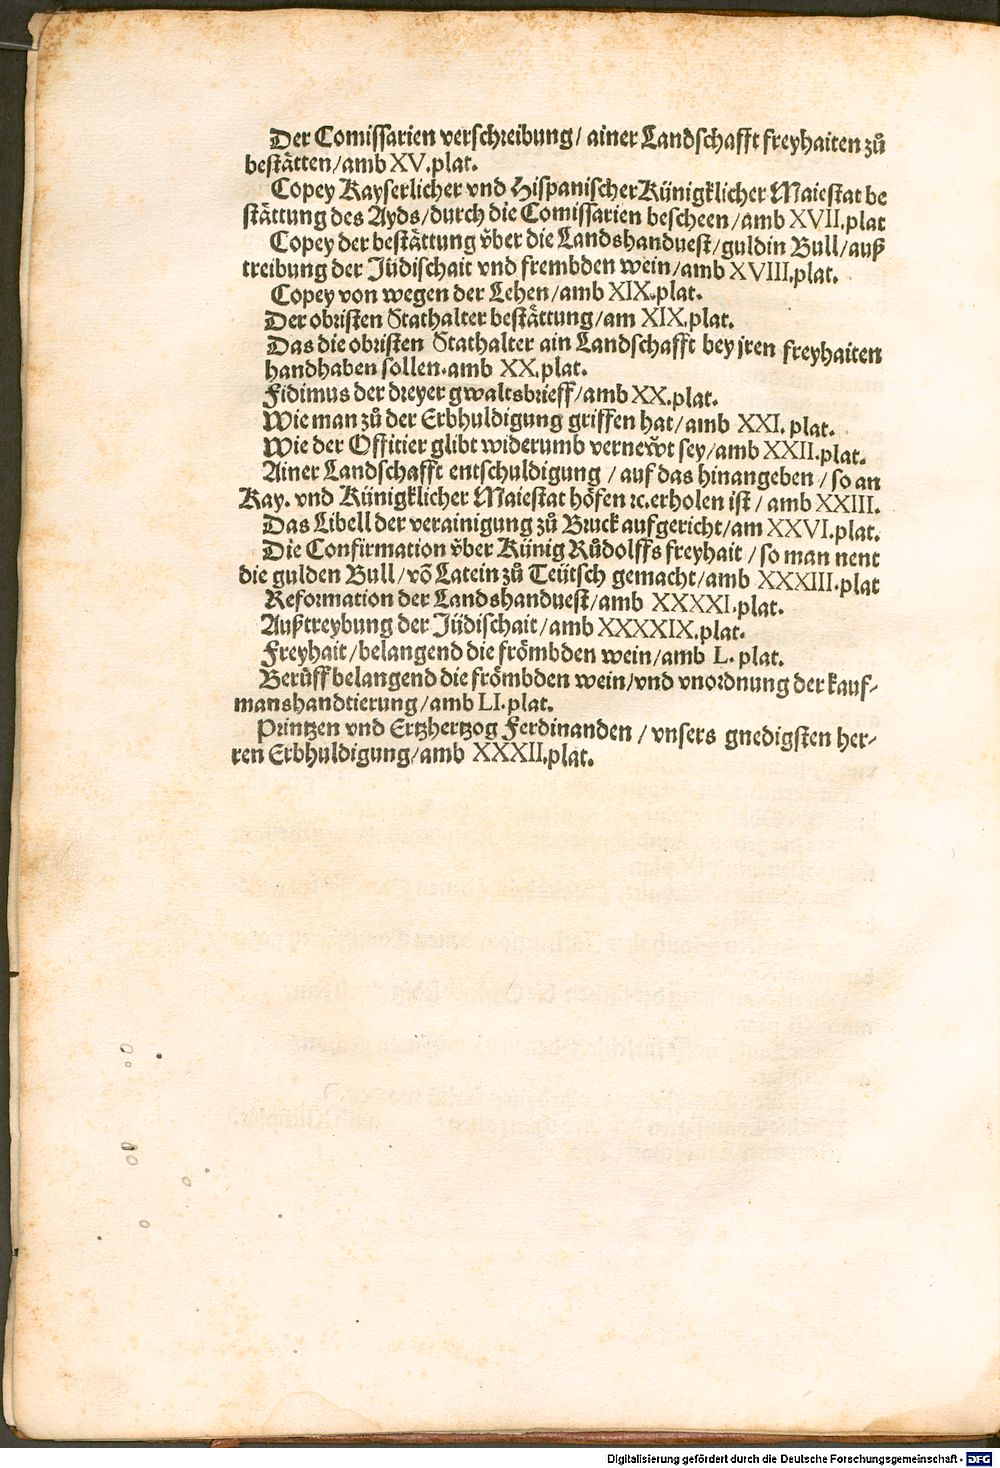 Der Comissarien verschreibung/ ainer Landschafft freyhaiten zů
bestätten/amb XV.plat.
Copey Kayserlicher vnd Hispanischer Künigklicher Maiestat be
stättung des Ayds/durch die Comissarien bescheen/amb XVII.plat
Copey der bestättung v̈ber die Landshanduest/guldin Bull/auß
treibung der Jüdischait vnd frembden wein/amb XVIII.plat.
Copey von wegen der Lehen/amb XIX.plat.
Der obristen Stathalter bestättung/am XIX.plat.
Das die obristen Stathalter ain Landschafft bey jren freyhaiten
handhaben sollen.amb XX.plat.
Fidimus der dreyer gwaltsbrieff/amb XX.plat.
Wie man zů der Erbhuldigung griffen hat/amb XXI. plat.
Wie der Offitier glibt widerumb vernewt sey/amb XXII.plat.
Ainer Landschafft entschuldigung / auf das hinangeben / so an
Kay. vnd Künigklicher Maiestat höfen ꝛc.erholen ist / amb XXIII.
Das Libell der verainigung zů Bruck aufgericht/am XXVI.plat.
Die Confirmation v̈ber Künig Růdolffs freyhait / so man nent
die gulden Bull/võ Latein zů Teütsch gemacht/amb XXXIII.plat
Reformation der Landshanduest/amb XXXXI.plat.
Außtreybung der Jüdischait/amb XXXXIX.plat.
Freyhait/belangend die frömbden wein/amb L. plat.
Berůff belangend die frömbden wein/vnd vnordnung der kauf-
manshandtierung/amb LI.plat.
Printzen vnd Ertzhertzog Ferdinanden / vnsers gnedigsten her-
ren Erbhuldigung/amb XXXII.plat.
Digitalisierung gefördert durch die Deutsche Forschungsgemeinschaft - DFG